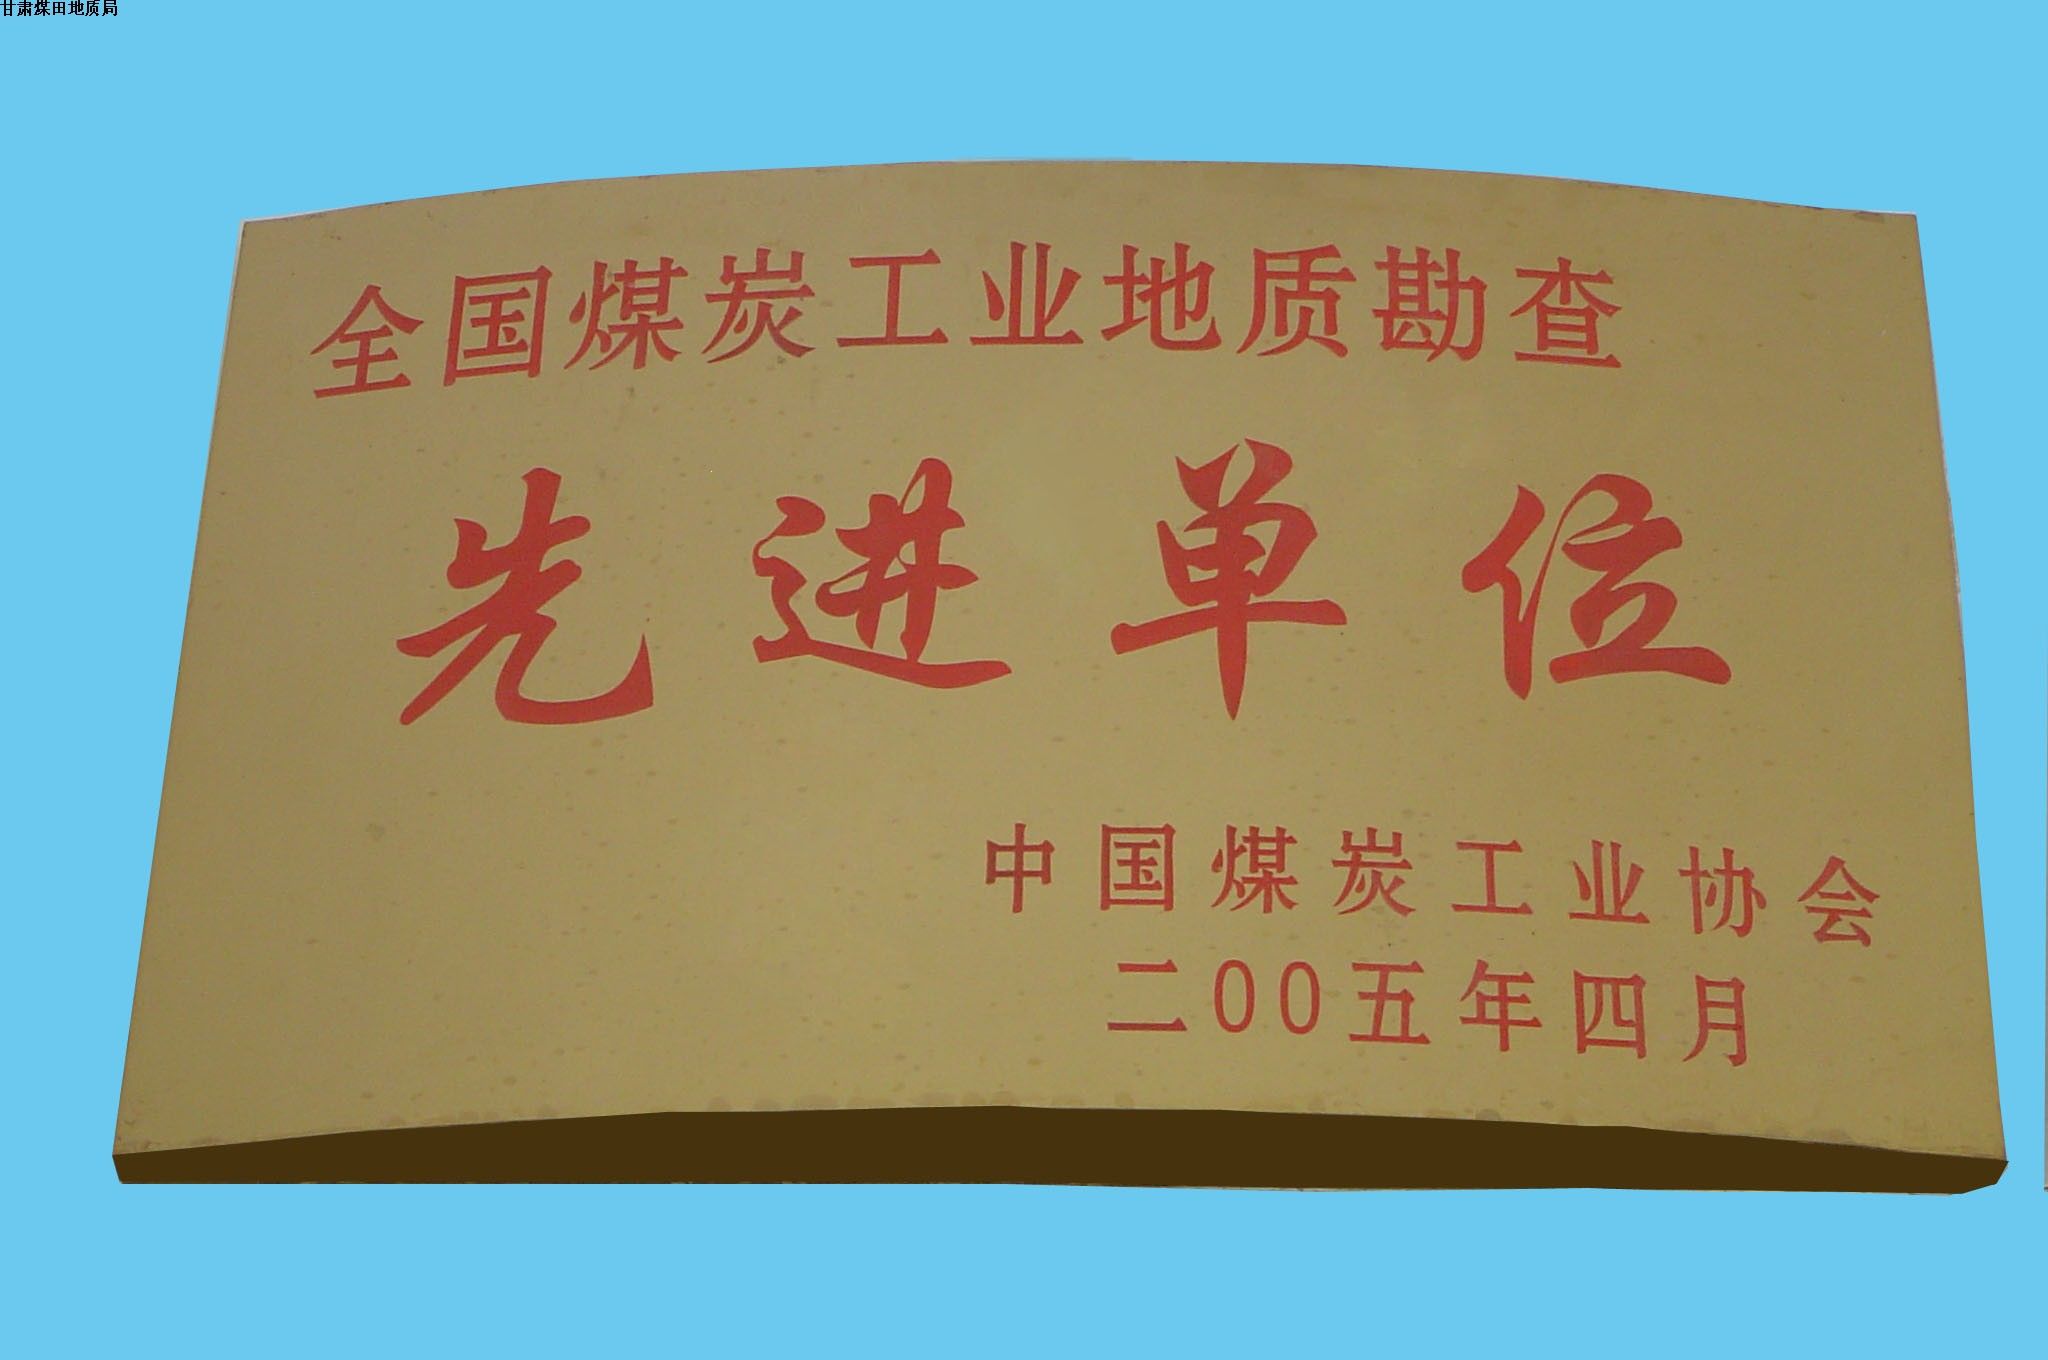 甘肃煤田地质局
全国煤炭工业地质勘查
先进单位
中国煤炭工业协会
二00五年四月